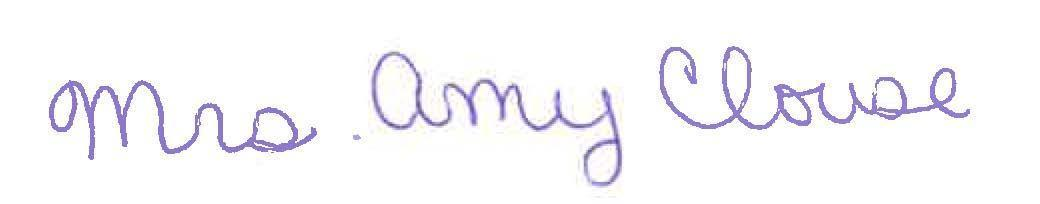 Mrs. Amy Clouse